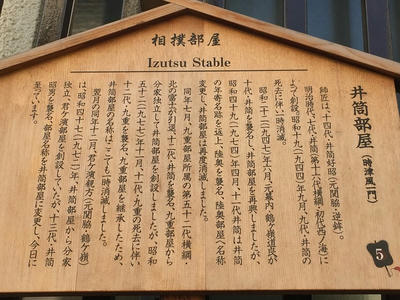 相撲部屋
Izutsu Stable
井筒部屋
〔時津風一門〕
師匠は、十四代・井筒好昭(元関脇・逆鉾)。
明治時代、七代・井筒(第十六代横綱・初代西ノ海)に
よって創設。昭和十九(一九四四)年九月、九代・井筒の
死去に伴い一時消滅。
昭和二十二(一九四七)年六月、元幕内・鶴ケ嶺道芳が
十代・井筒を襲名し、井筒部屋を再興しましたが、
昭和四十九(一九七四)年四月、十一代・井筒は井筒
の年寄名跡を返上、陸奥を襲名、陸奥部屋へ名称
変更し、井筒部屋は再度消滅しました。
同年七月、九重部屋所属の第五十二代横綱
北の富士が引退、十二代・井筒を襲名、九重部屋から
分家独立して井筒部屋を創設しましたが、昭和
五十二(一九七七)年十一月、十代・九重の死去に伴い
十二代・九重を襲名、九重部屋を継承したため、
井筒部屋の名称はここでも一時消滅しました。
翌月の同年十二月、君ケ濱親方(元関脇・鶴ケ嶺)
は、昭和四十七(一九七二)年、井筒部屋から分家
独立、君ケ濱部屋を創設していたが、十三代・井筒
昭男を襲名、部屋名称を井筒部屋に変更し、今日に
至っています。
5